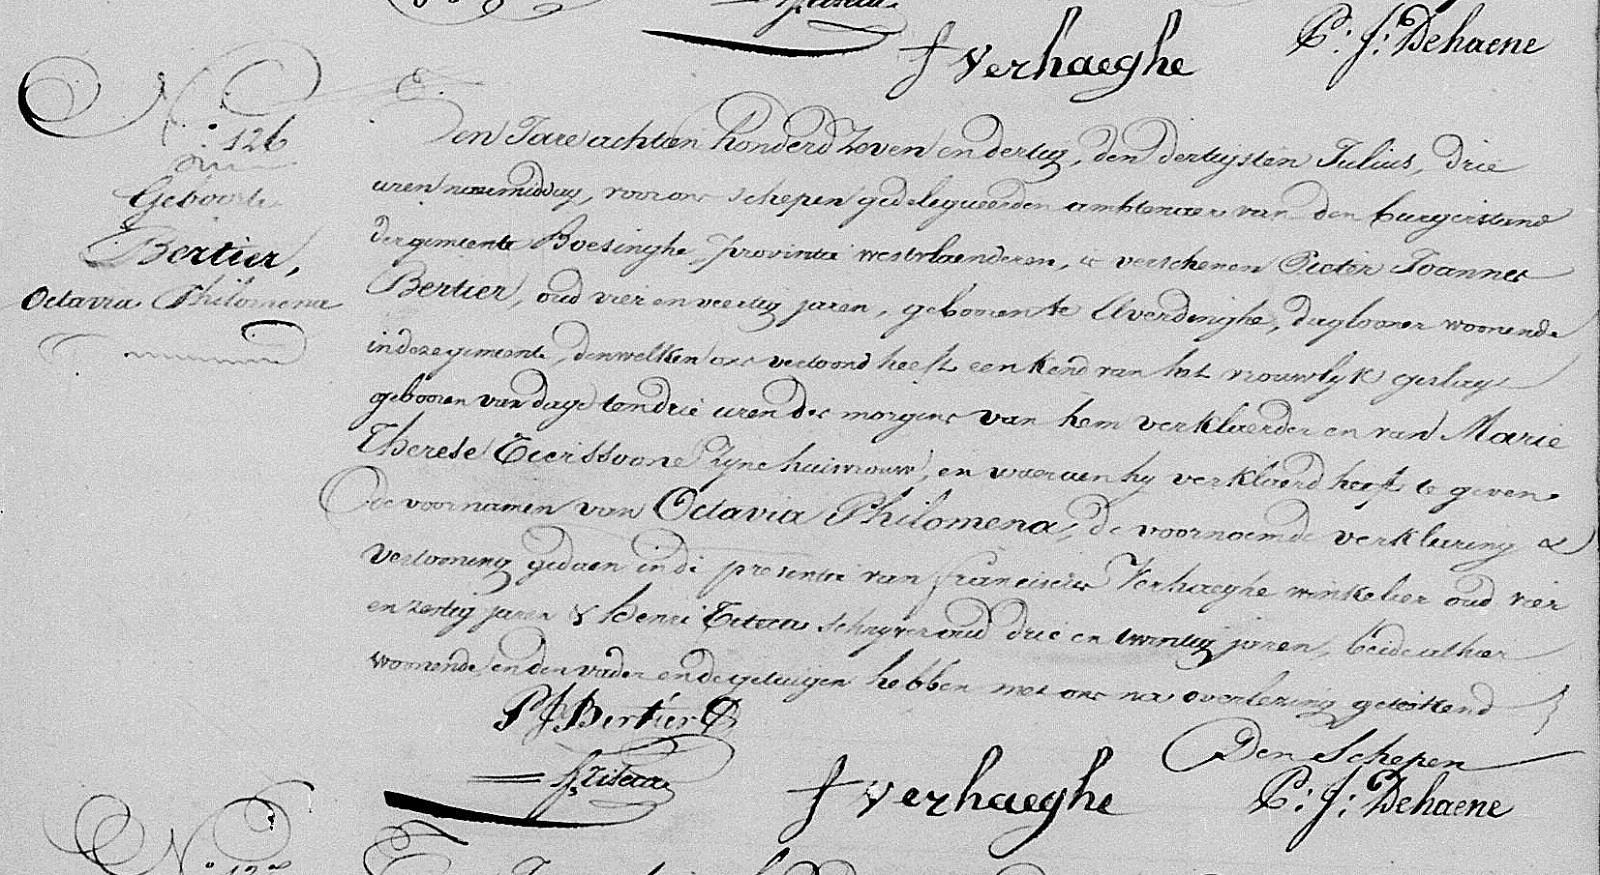 f Verhaeghe
P: J: Dehaene
N.° 126
Geboorte
Bertier,
Octavia Philomena
Den Jare achtien honderd zeven en dertig, den dertigsten Julius, drie
uren naermiddag, voor ons schepen gedelegueerden ambtenaer van den burgerstand
der gemeente Boesinghe, provintie westvlaenderen, is verschenen Pieter Joannes
Bertier, oud vier en veertig jaren, gebooren te Elverdinghe, daglooner woonende
in deze gemeente, denwelken ons vertoond heeft een kend van het vrouwlyk geslag
gebooren van dage ten drie uren des morgens van hem verklaerder en van Marie
Therese Teerssoone zyne huisvrouw, en waer aen hy verklaerd heeft te geven
de voornamen van Octavia Philomena, de voornoemde verklaring &
vertooning gedaen in de presentie van franciscus Verhaeghe winkelier oud vier
en zestig jaren & Henri Titeca schryver oud drie en twintig jaren, beide alhier
woonende, en den vader en de getuigen hebben met ons na overlezing geteekend
P J Bertier
Den Schepen
H. Titeca
f Verhaeghe
P: J: Dehaene
N.°